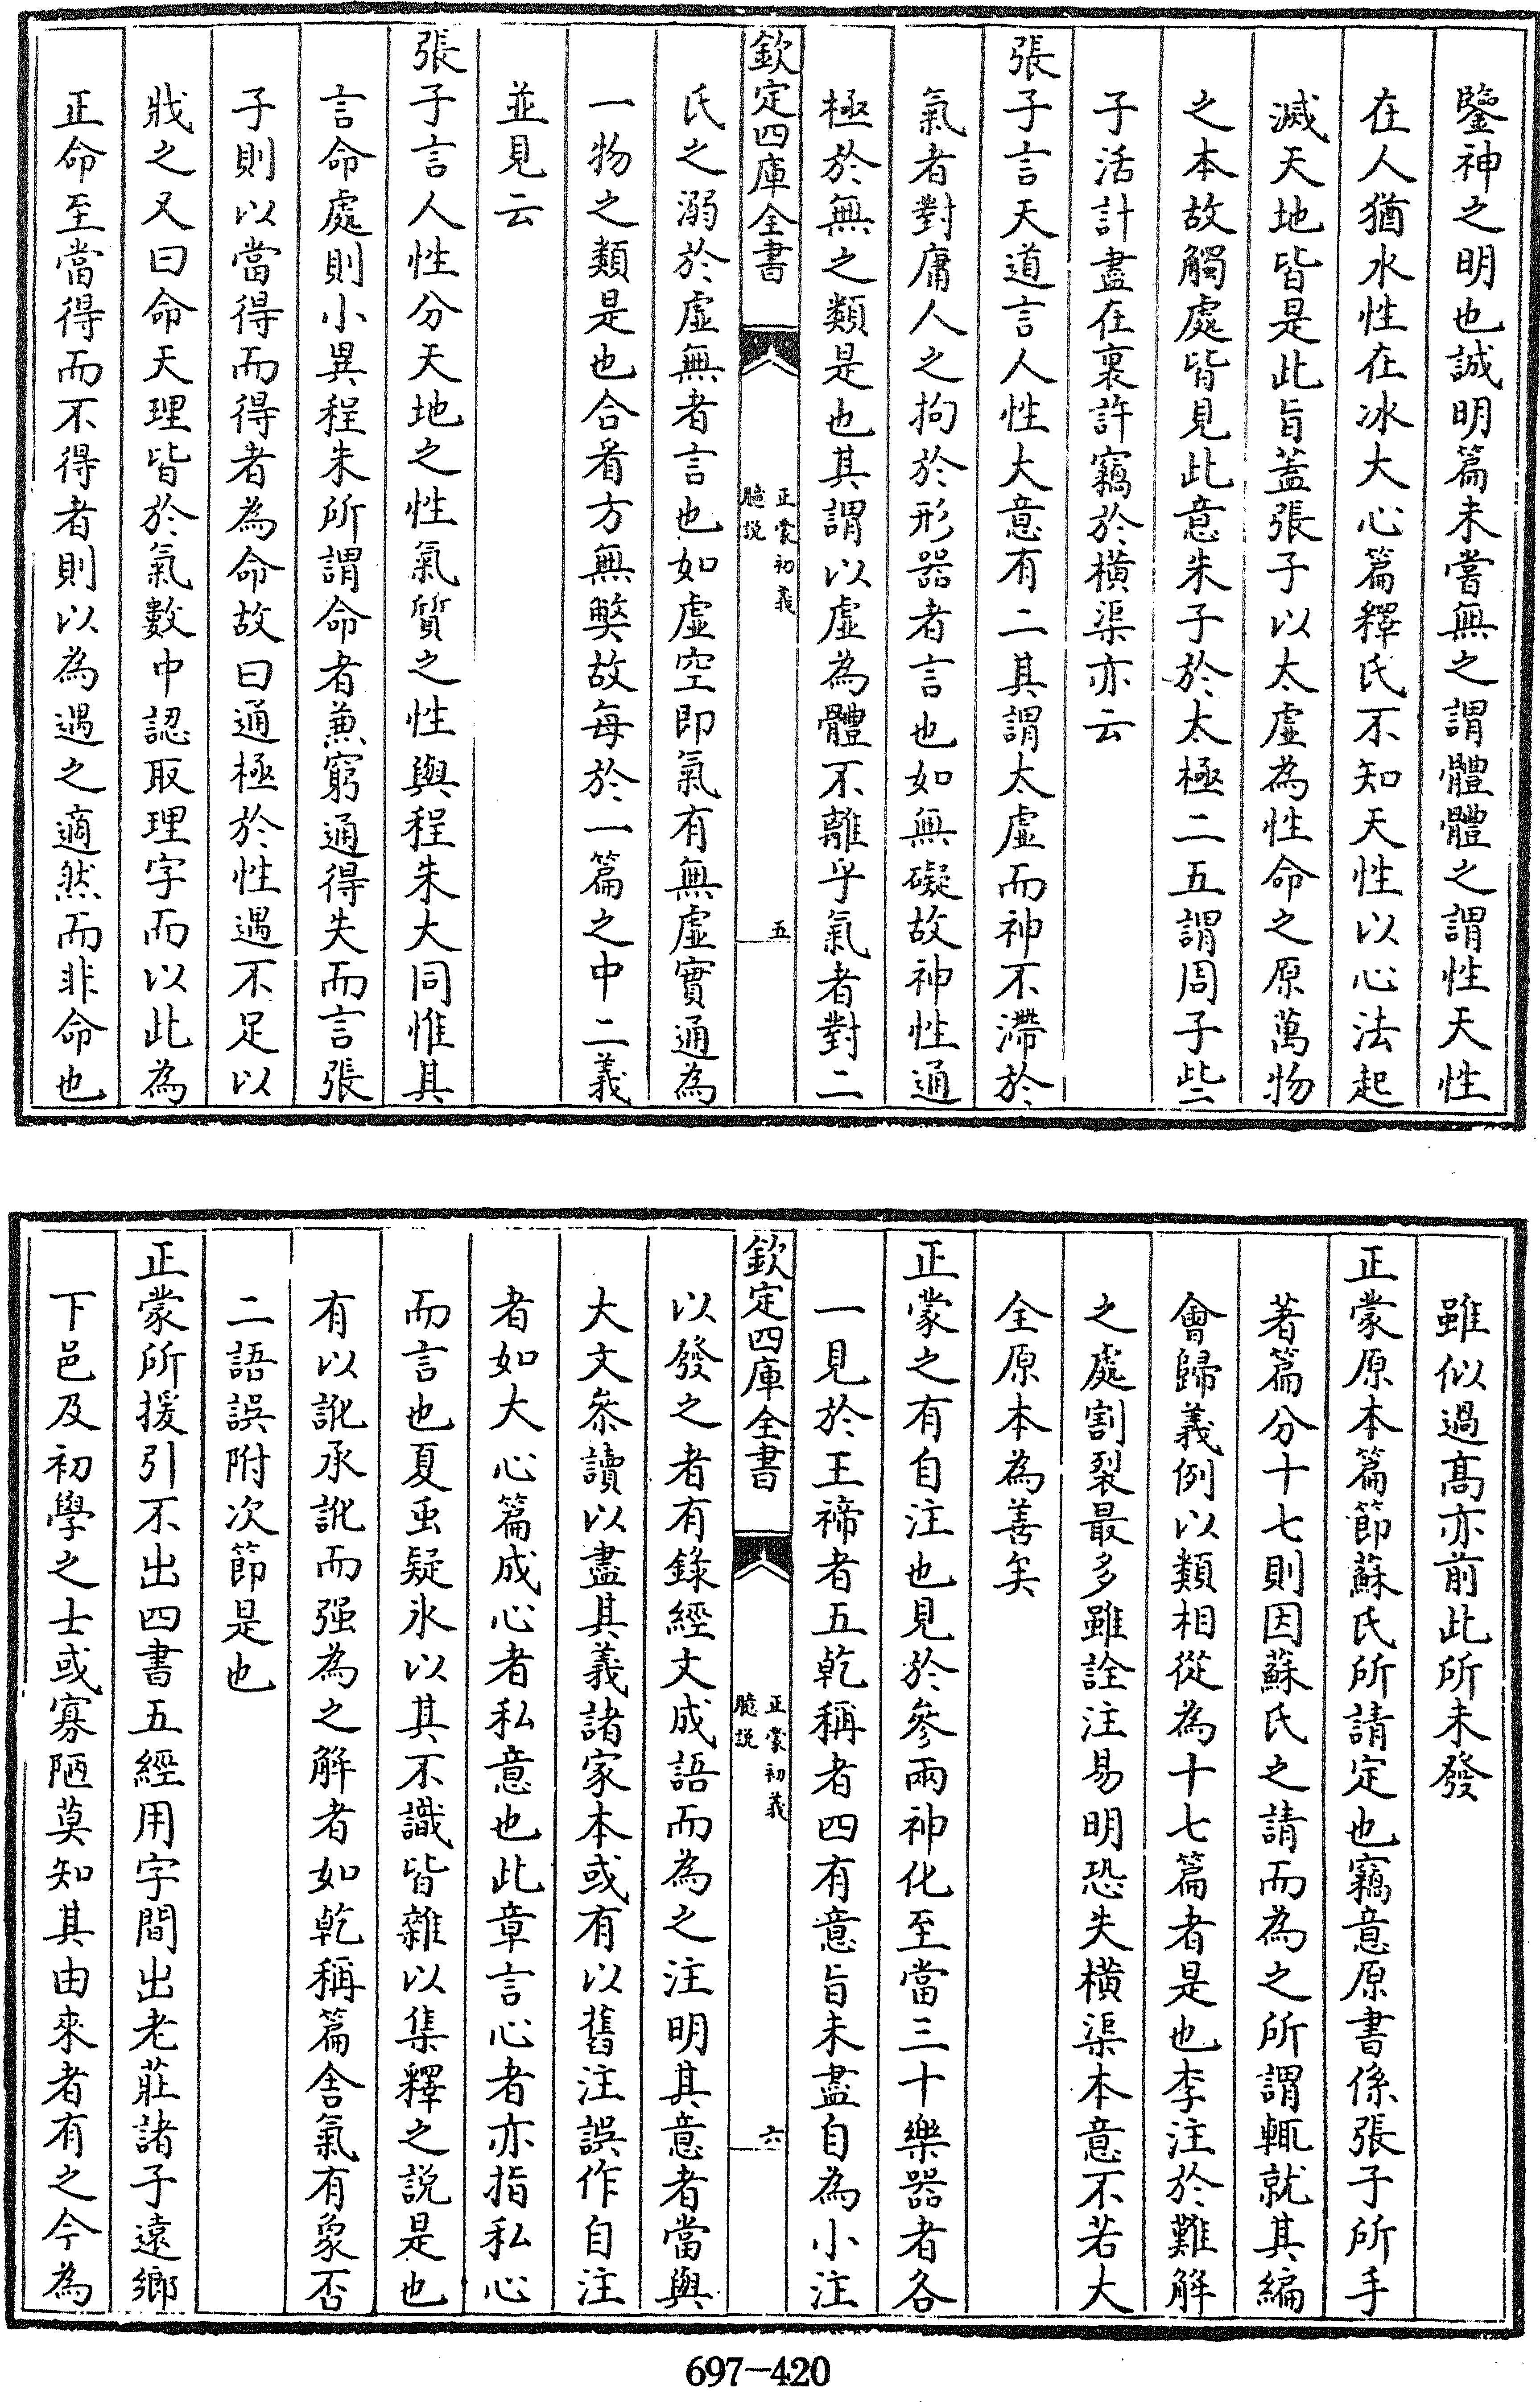 鑒神之明也誠明篇未嘗無之謂體體之謂性天性
在人猶水性在冰大心篇釋氏不知天性以心法起
滅天地皆是此旨蓋張子以太虛為性命之原萬物
之本故觸處皆見此意朱子於太極二五謂周子些
子活計盡在裏許竊於橫渠亦云
張子言天道言人性大意有二其謂太虛而神不滯於
氣者對庸人之拘於形器者言也如無礙故神性通
極於無之類是也其謂以虛為體不離乎氣者對二
欽定四庫全書
正蒙初義
臆說
五
氏之溺於虛無者言也如虛空即氣有無虛實通為
一物之類是也合看方無弊故每於一篇之中二義
並見云
張子言人性分天地之性氣質之性與程朱大同惟其
言命處則小異程朱所謂命者兼窮通得失而言張
子則以當得而得者為命故曰通極於性遇不足以
戕之又曰命天理皆於氣數中認取理字而以此為
正命至當得而不得者則以為遇之適然而非命也
雖似過高亦前此所未發
正蒙原本篇節蘇氏所請定也竊意原書係張子所手
著篇分十七則因蘇氏之請而為之所謂輒就其編
會歸義例以類相從為十七篇者是也李注於難解
之處割裂最多雖詮注易明恐失橫渠本意不若大
全原本為善矣
正蒙之有自注也見於參兩神化至當三十樂器者各
一見於王禘者五乾稱者四有意旨未盡自為小注
欽定四庫全書
正蒙初義
臆說
六
以發之者有錄經文成語而為之注明其意者當與
大文叅讀以盡其義諸家本或有以舊注誤作自注
者如大心篇成心者私意也此章言心者亦指私心
而言也夏虫疑氷以其不識皆雜以集釋之說是也
有以訛承訛而强為之解者如乾稱篇舍氣有象否
二語誤附次節是也
正蒙所援引不出四書五經用字間出老莊諸子遠鄉
下邑及初學之士或寡陋莫知其由來者有之今為
697-420